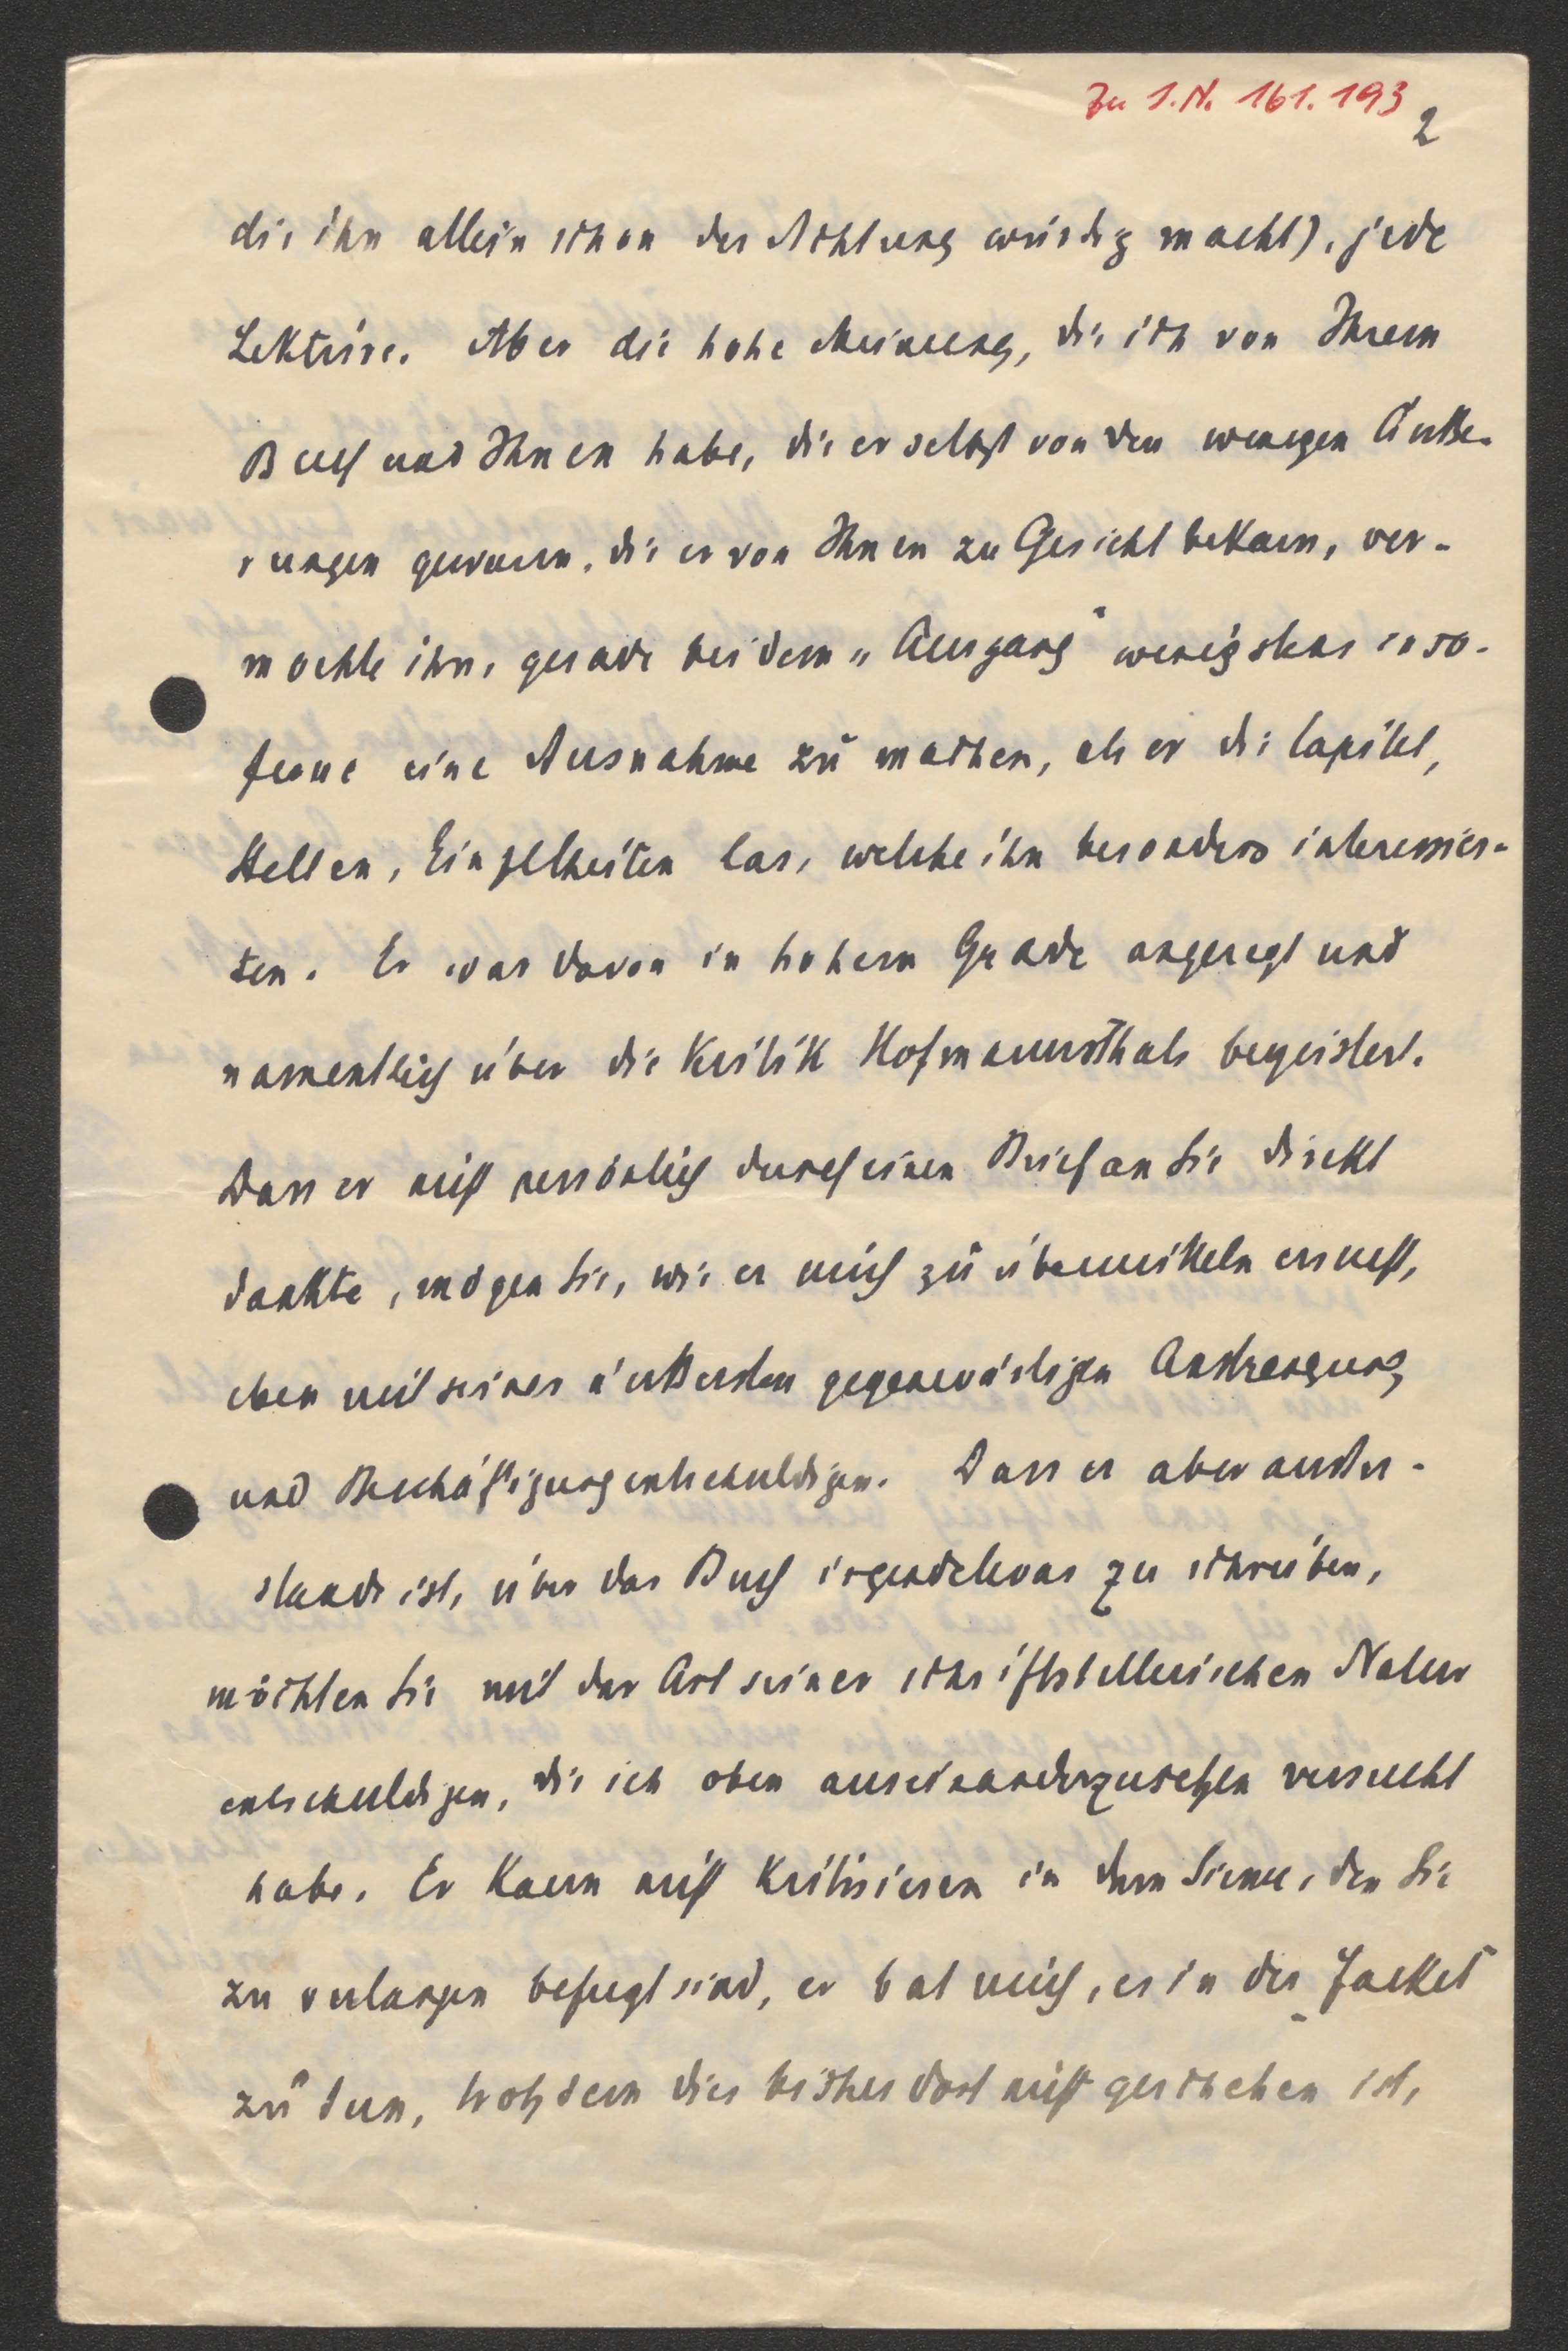 Zu I.N. 161.193
2
die ihn allein schon der Achtung würdig macht), jede
Lektüre. Aber die hohe Meinung, die ich von Ihrem
Buch und Ihnen habe, die er selbst von den wenigen Äuße-
rungen gewann, die er von Ihnen zu Gesicht bekam, ver-
mochte ihn, gerade bei dem „Ausgang" wenigstens inso-
ferne eine Ausnahme zu machen, als er die Capitel,
Stellen, Einzelheiten las, welche ihn besonders interessier-
ten. Er war davon in hohem Grade angeregt und
namentlich über die Kritik Hofmannsthals begeistert.
Dass er nicht persönlich durch einen Brief an Sie direkt
dankte, mögen Sie, wie er mich zu übermitteln ersucht,
eben mit seiner äußersten gegenwärtigen Anstrengung
und Beschäftigung entschuldigen. Dass er aber außer-
stande ist, über das Buch irgendetwas zu schreiben,
möchten Sie mit der Art seiner schriftstellerischen Natur
entschuldigen, die ich oben auseinanderzusetzen versucht
habe. Er kann nicht kritisieren in dem Sinne, den Sie
zu verlangen befugt sind, er bat mich, es in der Fackel
zu tun, trotzdem dies bisher dort nicht geschehen ist,